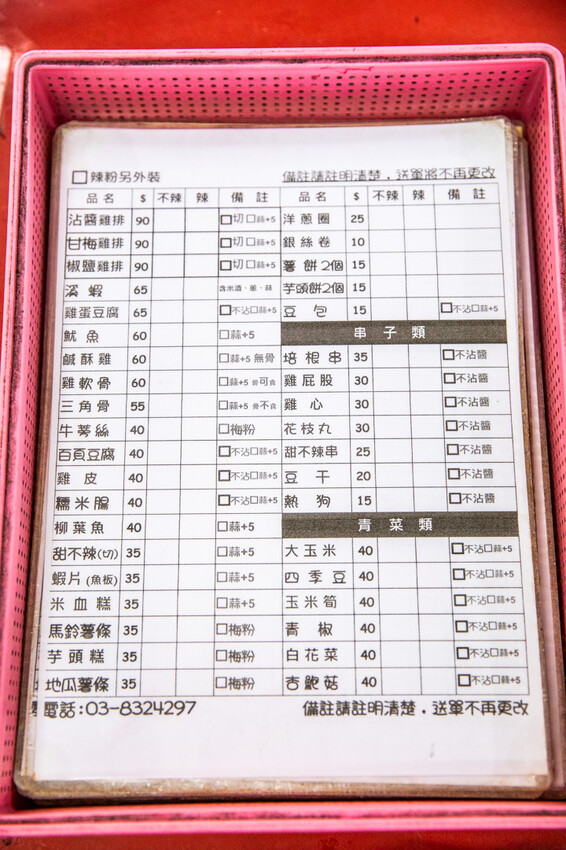 ☐辣粉另外裝 備註請註明清楚．送單將不再更改
品名 $ 不辣 辣 備註 品名 $ 不辣 辣 備註
沾醬雞排 90 ☐切☐蒜+5 洋蔥圈 25
甘梅雞排 90 ☐切☐蒜+5 銀絲卷 10
椒鹽雞排 90 ☐切☐蒜+5 薯餅2個 15
溪蝦 65 含米酒、蔥、蒜 芋頭餅2個 15
雞蛋豆腐 65 ☐不沾☐蒜+5 豆包 15 ☐不沾☐蒜+5
魷魚 60 ☐蒜+5 串子類
鹹酥雞 60 ☐蒜+5 無骨 培根串 35 ☐不沾醬
雞軟骨 60 ☐蒜+5 骨可食 雞屁股 30 ☐不沾醬
三角骨 55 ☐蒜+5 骨不食 雞心 30 ☐不沾醬
牛蒡絲 40 ☐梅粉 花枝丸 30 ☐不沾醬
百頁豆腐 40 ☐不沾☐蒜+5 甜不辣串 25 ☐不沾醬
雞皮 40 ☐不沾☐蒜+5 豆干 20 ☐不沾醬
糯米腸 40 ☐不沾☐蒜+5 熱狗 15 ☐不沾醬
柳葉魚 40 ☐蒜+5 青菜類
甜不辣(切) 35 ☐蒜+5 大玉米 40 ☐不沾☐蒜+5
蝦片(魚板) 35 ☐蒜+5 四季豆 40 ☐不沾☐蒜+5
米血糕 35 ☐蒜+5 玉米筍 40 ☐不沾☐蒜+5
馬鈴薯條 35 ☐梅粉 青椒 40 ☐不沾☐蒜+5
芋頭糕 35 ☐梅粉 白花菜 40 ☐不沾☐蒜+5
地瓜薯條 35 ☐梅粉 杏鮑菇 40 ☐不沾☐蒜+5
電話:03-8324297 備註請註明清楚．送單不再更改